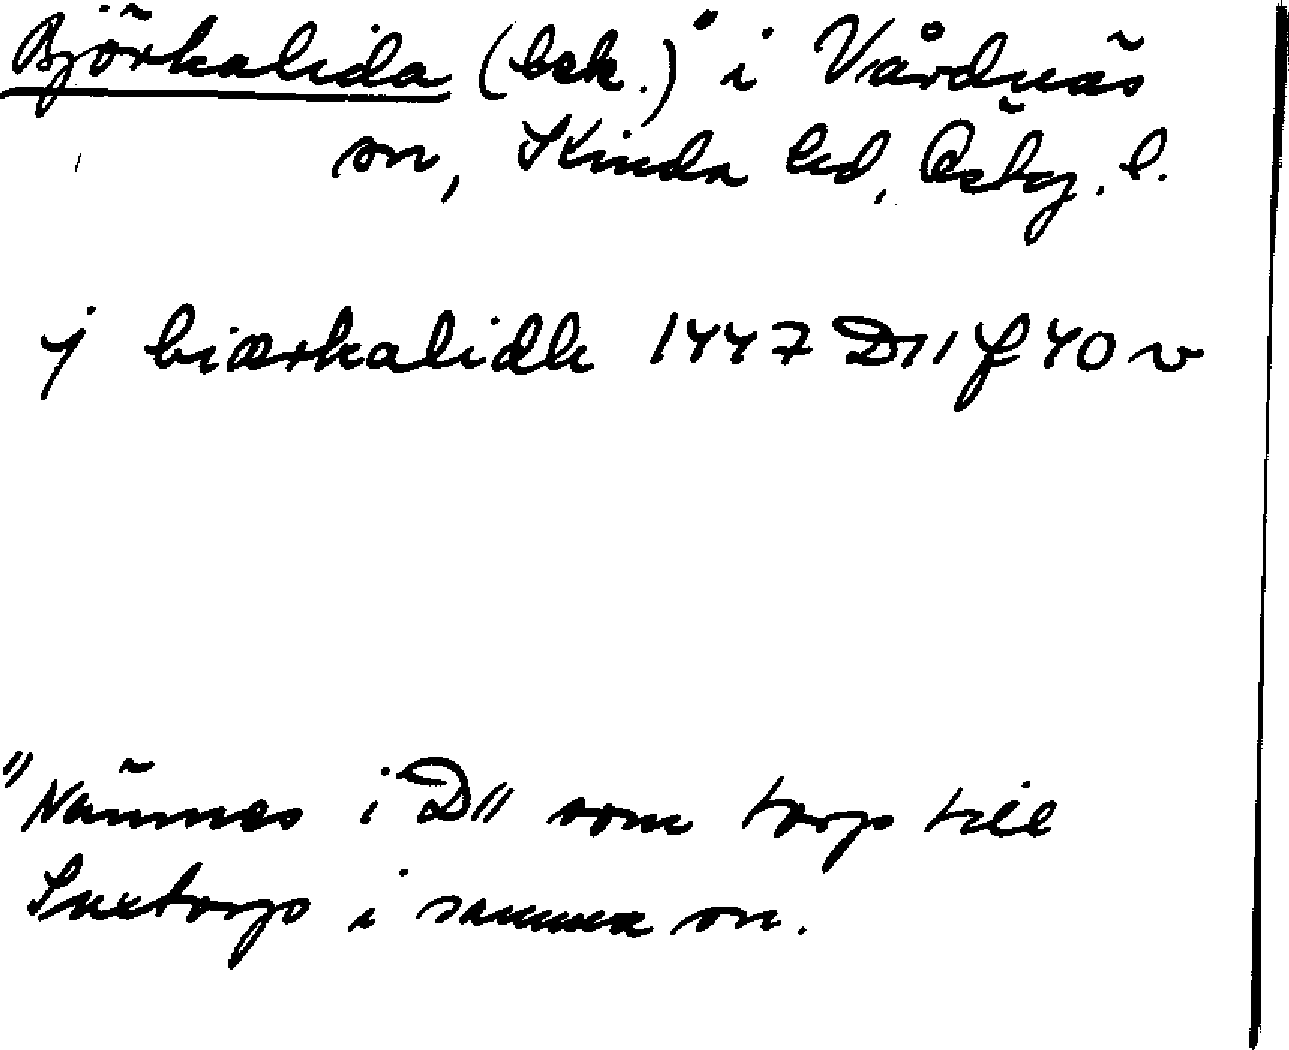 Björkalida (bek.)" i Vårdnäs
sn, Kinda hd, Östg. l.
j biærkalidh 1447 D11 f 40 v
"Nämnes i D11 som torp till
Saxtorp i samma sn.